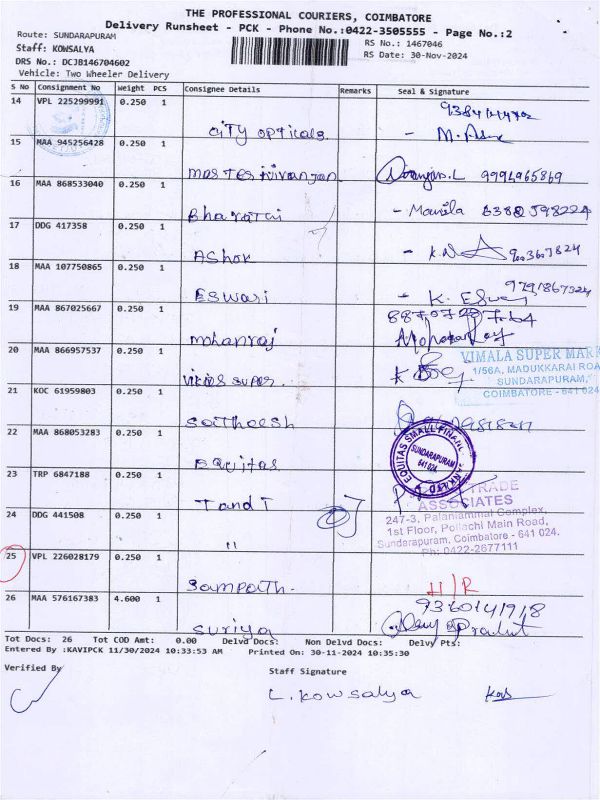 THE PROFESSIONAL COURIERS, COIMBATORE
Delivery Runsheet - PCK - Phone No.:0422-3505555 - Page No.:2
Route: SUNDARAPURAM
RS No.: 1467046
Staff: KOWSALYA
RS Date: 30-Nov-2024
DRS No.: DCJB146704602
Vehicle: Two Wheeler Delivery
S No Consignment No Weight PCS Consignee Details Remarks Seal & Signature
14 VPL 225299991 0.250 1
City opticals
15 MAA 945256428 0.250 1
Niranjan.L 9994965869
16 MAA 868533040 0.250 1
Manila
17 DDG 417358 0.250 1
Ashok
18 MAA 107750865 0.250 1
Eswari
K.
19 MAA 867025667 0.250 1
Mohanraj
20 MAA 866957537 0.250 1
super
VIMALA SUPER MAR
1/56A, MADUKKARAI ROA
SUNDARAPURAM,
COIMBATORE - 641 024
21 KOC 61959803 0.250 1
Satheesh
22 MAA 868053283 0.250 1
Equitas
EQUITAS SMALL FINANCE BANK LTD
SUNDARAPURAM
641 024.
23 TRP 6847188 0.250 1
T and T
TRADE
ASSOCIATES
24 DDG 441508 0.250 1
"
247-3, Palaniammal Complex,
1st Floor, Pollachi Main Road,
Sundarapuram, Coimbatore - 641 024.
Ph: 0422-2677111
25 VPL 226028179 0.250 1
Sampath.
H/R
26 MAA 576167383 4.600 1
Suriya
Tot Docs: 26 Tot COD Amt: 0.00 Delvd Docs: Non Delvd Docs: Delvy Pts:
Entered By :KAVIPCK 11/30/2024 10:33:53 AM Printed On: 30-11-2024 10:35:30
Verified By
Staff Signature
L. Kowsalya